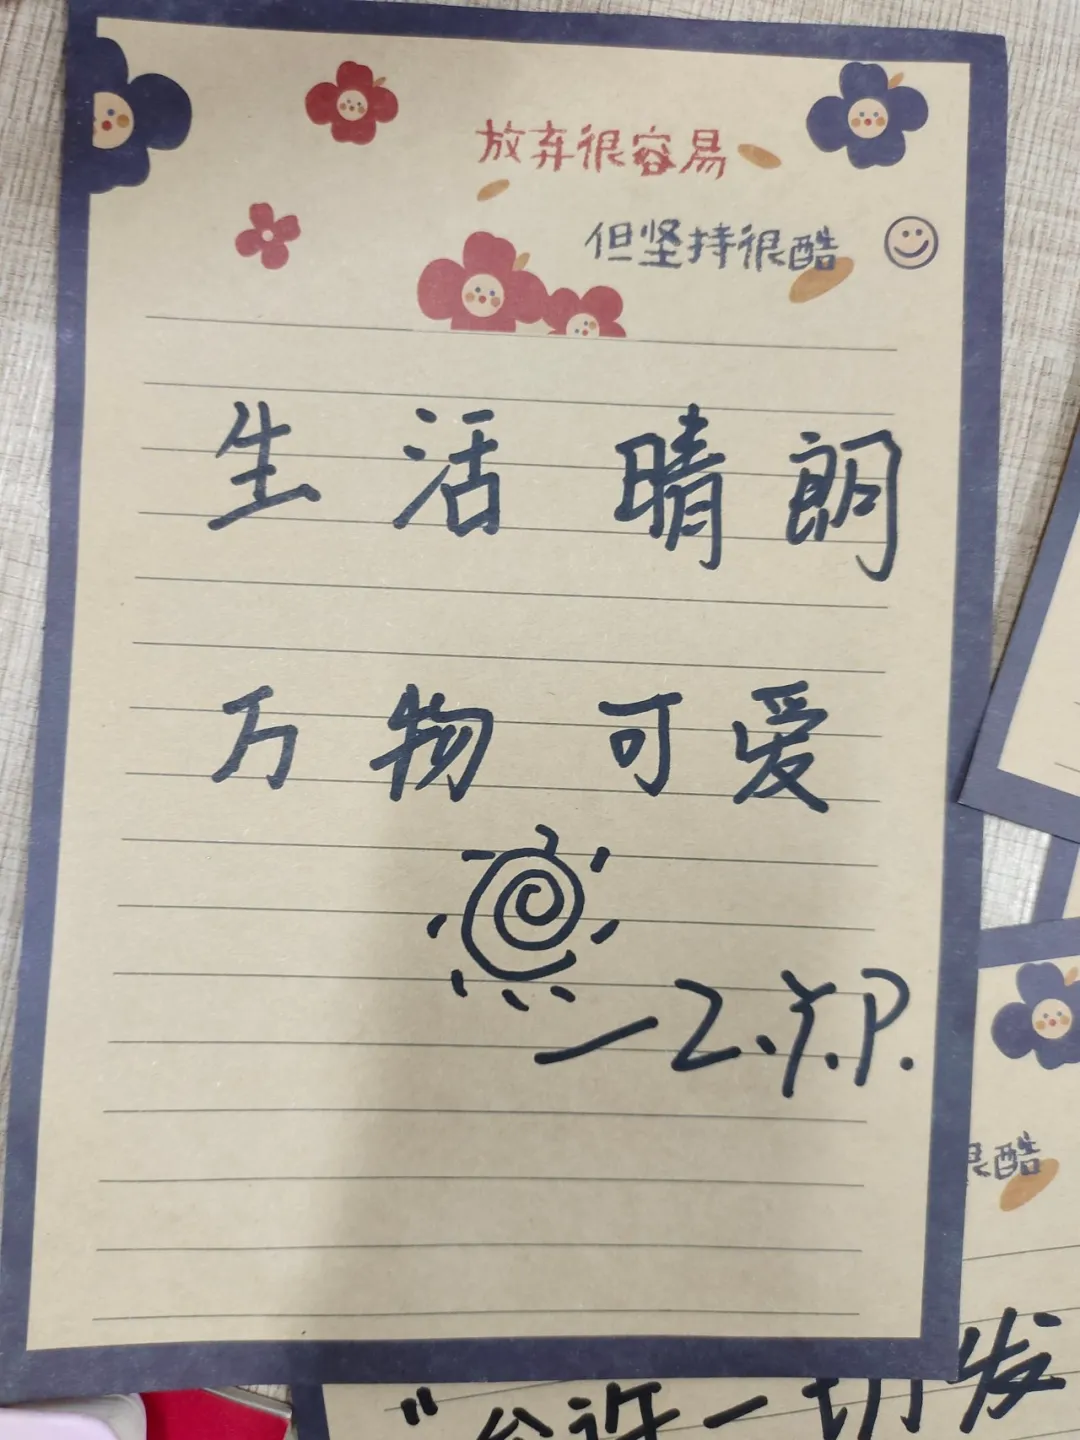 放弃很容易
但坚持很酷
生活晴朗
万物可爱
—Z.Y.P.
很酷
"允许一切发